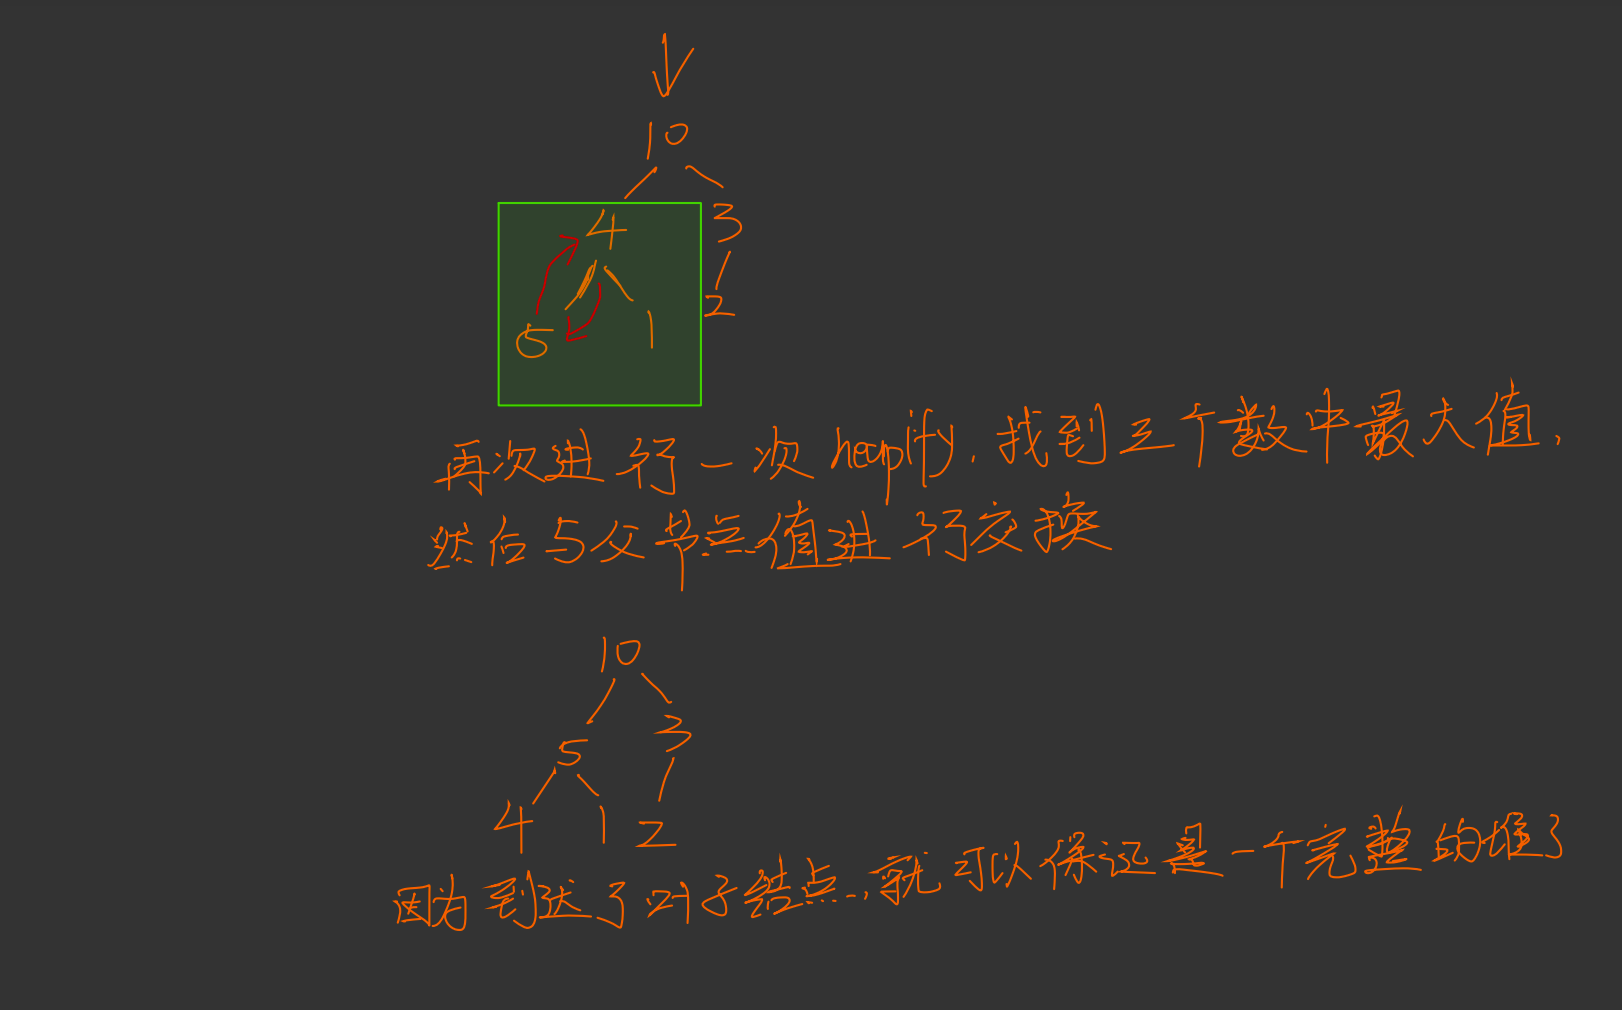 10
4 3
5 1 2
再次进行一次 heapify, 找到三个数中最大值,
然后与父节点值进行交换
10
5 3
4 1 2
因为到达了叶子结点, 就可以保证是一个完整的堆了